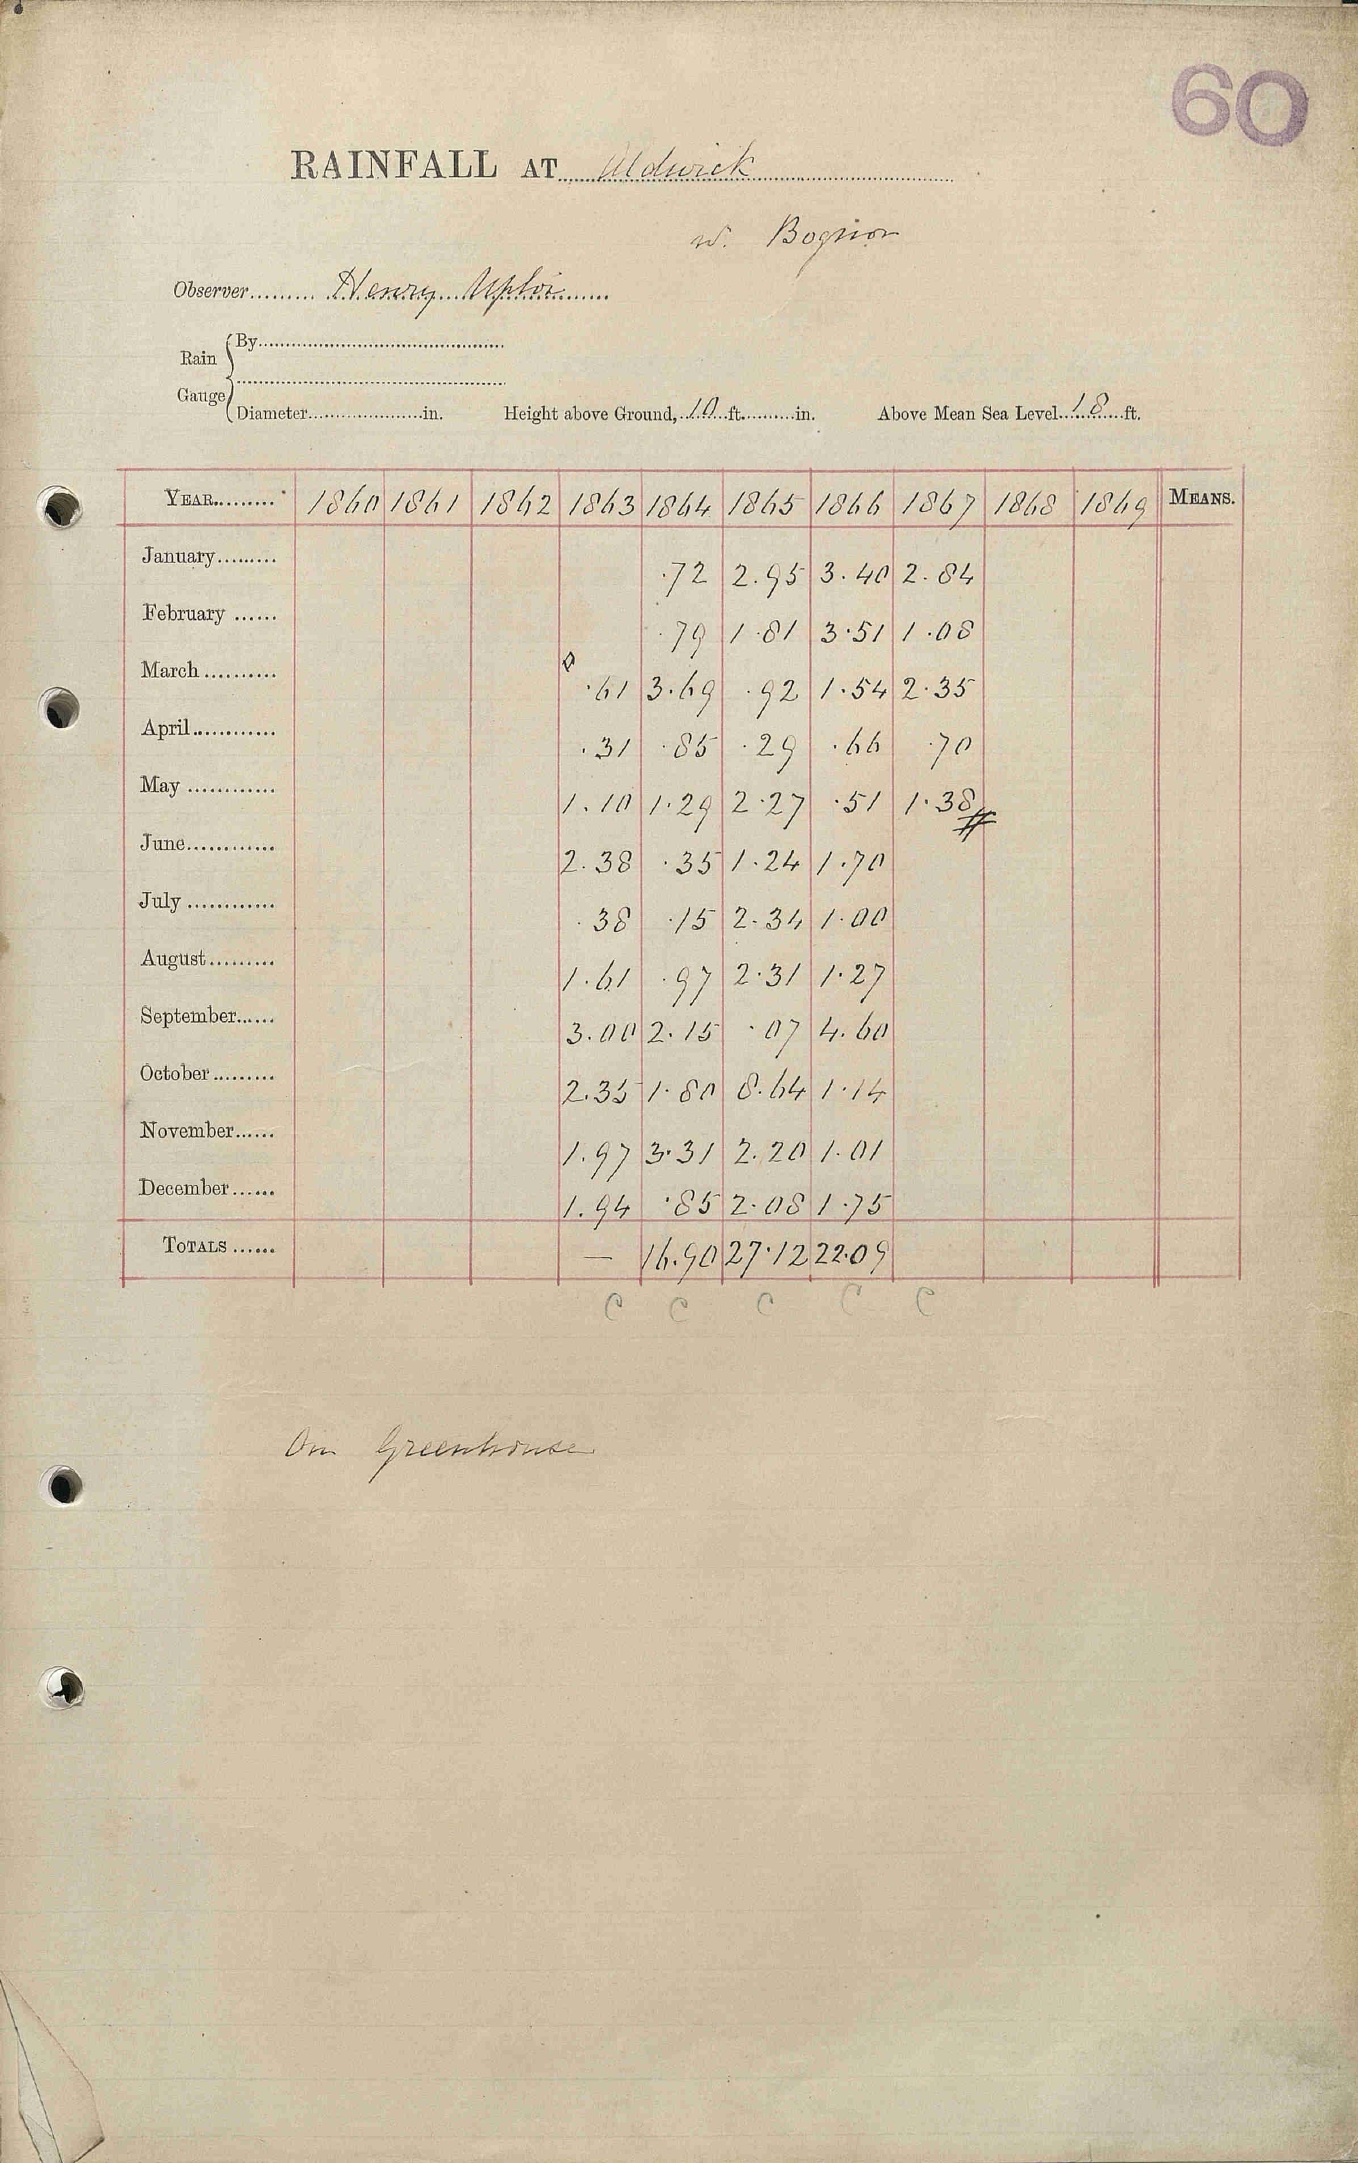 60
RAINFALL AT Aldwick
w. Bognor
Observer Henry
Rain Gauge { By
Diameter in. Height above Ground, 10 ft. in. Above Mean Sea Level 18 ft.
YEAR 1860 1861 1862 1863 1864 1865 1866 1867 1868 1869 MEANS.
January .72 2.95 3.40 2.84
February .79 1.81 3.51 1.08
March .61 3.69 .92 1.54 2.35
April .31 .85 .29 .66 .70
May 1.10 1.29 2.27 .51 1.38
June 2.38 .35 1.24 1.70
July .38 .15 2.34 1.00
August 1.61 .97 2.31 1.27
September 3.00 2.15 .07 4.60
October 2.35 1.80 8.64 1.14
November 1.97 3.31 2.20 1.01
December 1.94 .85 2.08 1.75
TOTALS — 16.90 27.12 22.09
C C C C C
On Greenhouse